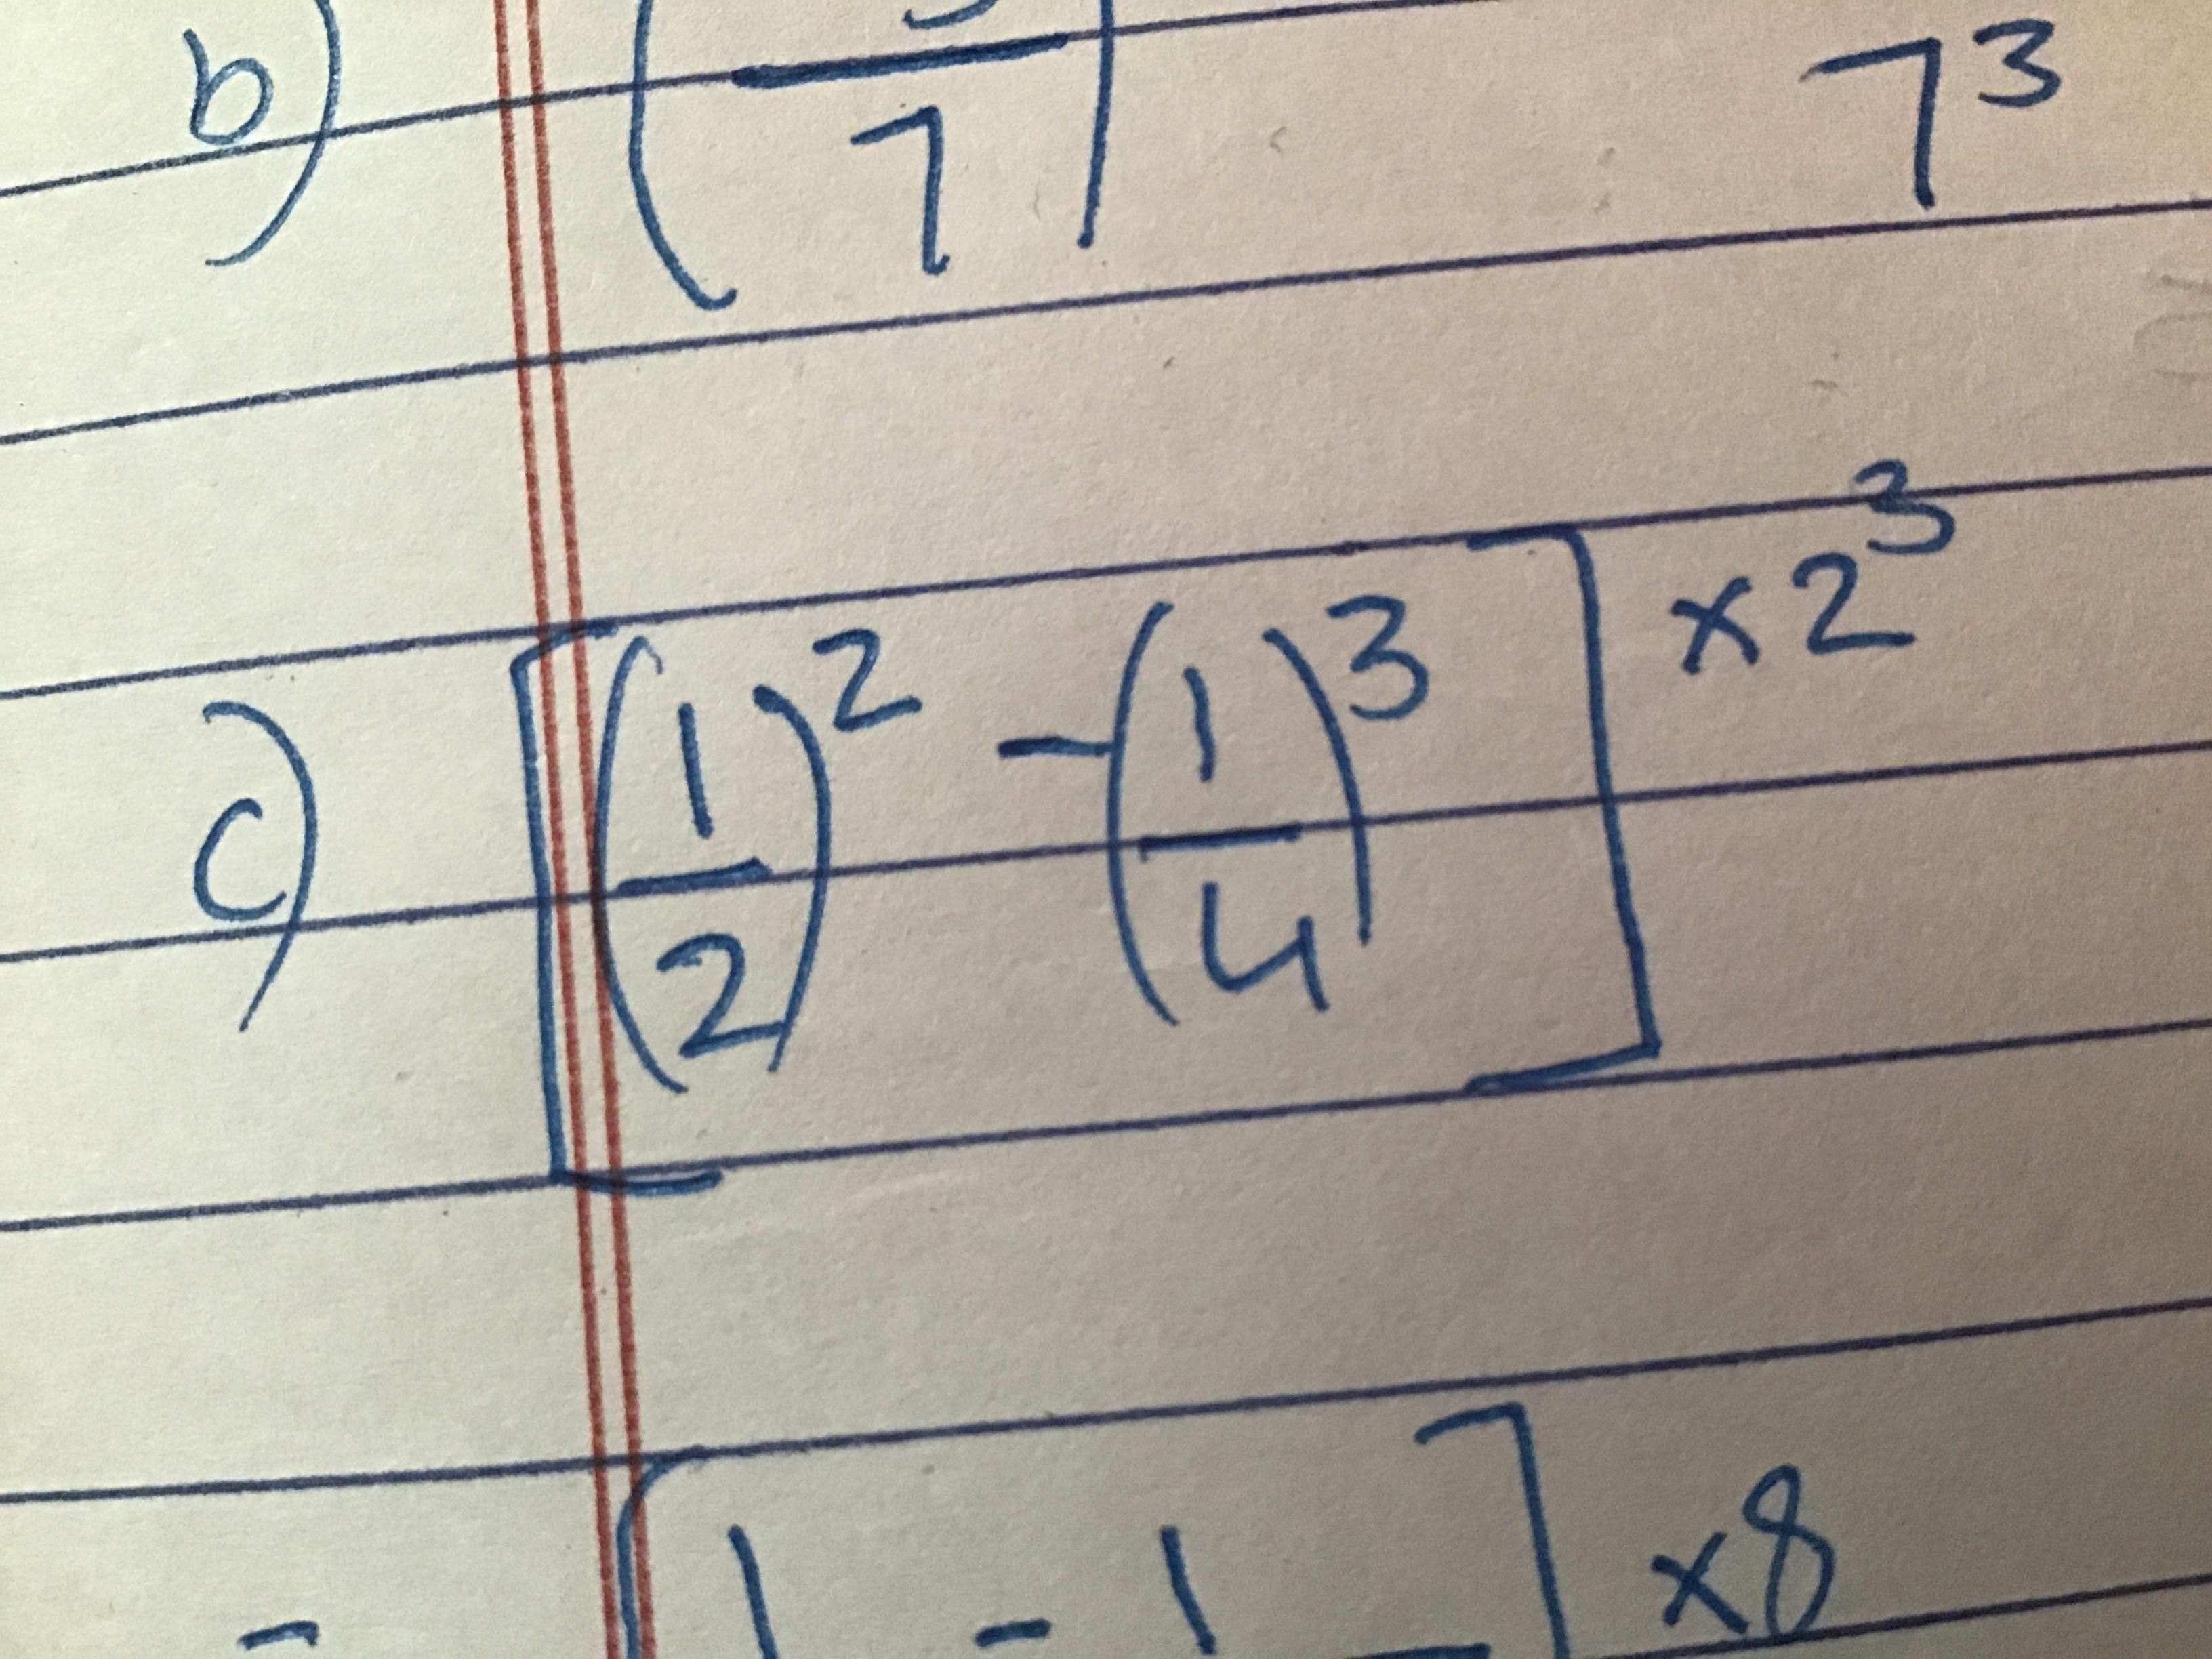 b) ( — / 7 ) 7³
c) [(1/2)² - (1/4)³] ×2³
- [1 - 1 ] ×8